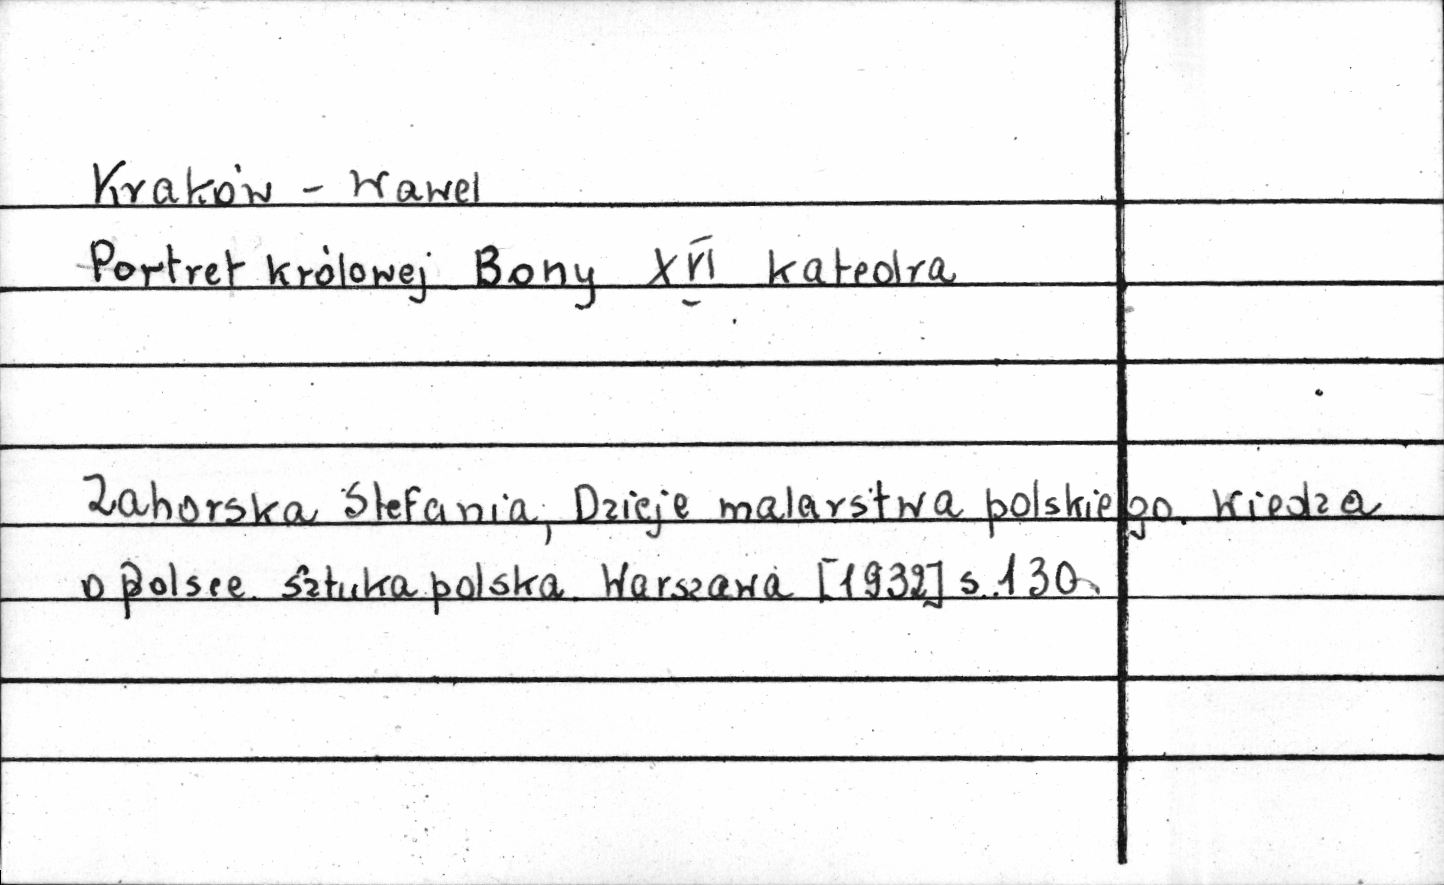 Kraków - Wawel
Portret królowej Bony XVI katedra
Zahorska Stefania, Dzieje malarstwa polskiego. Wiedza
o Polsce. Sztuka polska. Warszawa [1932] s. 130